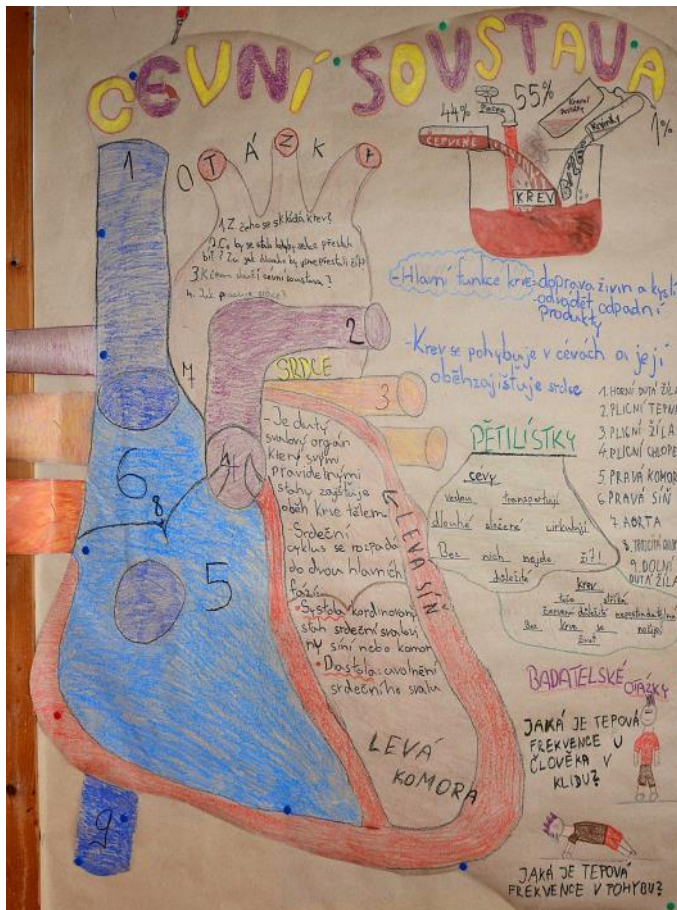 CEVNÍ SOUSTAVA
44%
55%
1%
ČERVENÉ
KREV
OTÁZKY
1. Z čeho se skládá krev?
2. Co by se stalo kdyby srdce přestalo
bít? Za jak dlouho by jsme přestali žít?
3. K čemu slouží cévní soustava?
4. Jak pracuje srdce?
-Hlavní funkce krve=doprava živin a kyslí
-odvádět odpadní
produkty
-Krev se pohybuje v cévách a její
oběh zajišťuje srdce
1
2
3
4
5
6
7
8
9
SRDCE
-Je dutý
svalový orgán
který svými
pravidelnými
stahy zajišťuje
oběh krve tělem
-Srdeční
cyklus se rozpadá
do dvou hlavních
fází:
•Systola: kordinovaný
stah srdeční svalovi
ny síní nebo komor
•Diastola: uvolnění
srdečního svalu
LEVÁ SÍŇ
LEVÁ
KOMORA
1. HORNÍ DUTÁ ŽÍLA
2. PLICNÍ TEPNA
3. PLICNÍ ŽÍLA
4. PLICNÍ CHLOPE
5. PRAVÁ KOMOR
6. PRAVÁ SÍŇ
7. AORTA
8.
9. DOLNÍ
DUTÁ ŽÍLA
PĚTILÍSTKY
cévy
vedou transportují
dlouhé složené cirkulují
Bez nich nejde žít!
důležitá
krev
teče stříká
červená důležitá nepostradatelná
Bez krve se nežije
život
BADATELSKÉ OTÁZKY
JAKÁ JE TEPOVÁ
FREKVENCE U
ČLOVĚKA V
KLIDU?
JAKÁ JE TEPOVÁ
FREKVENCE V POHYBU?